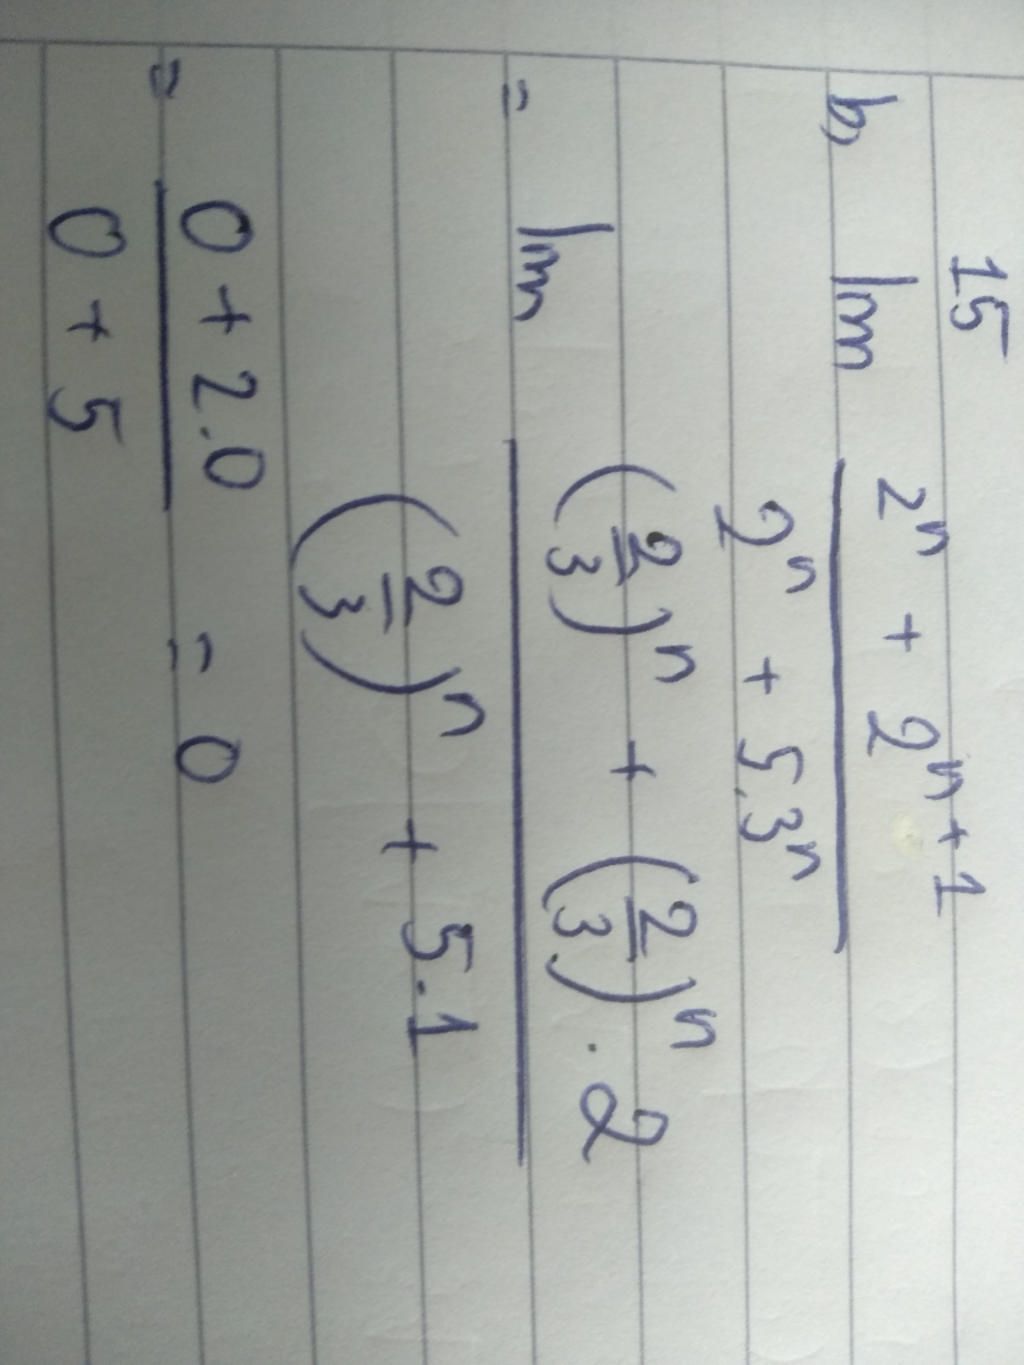 15
b) lim (2ⁿ + 2ⁿ⁺¹) / (2ⁿ + 5.3ⁿ)
= lim ((2/3)ⁿ + (2/3)ⁿ . 2) / ((2/3)ⁿ + 5.1)
= (0 + 2.0) / (0 + 5) = 0